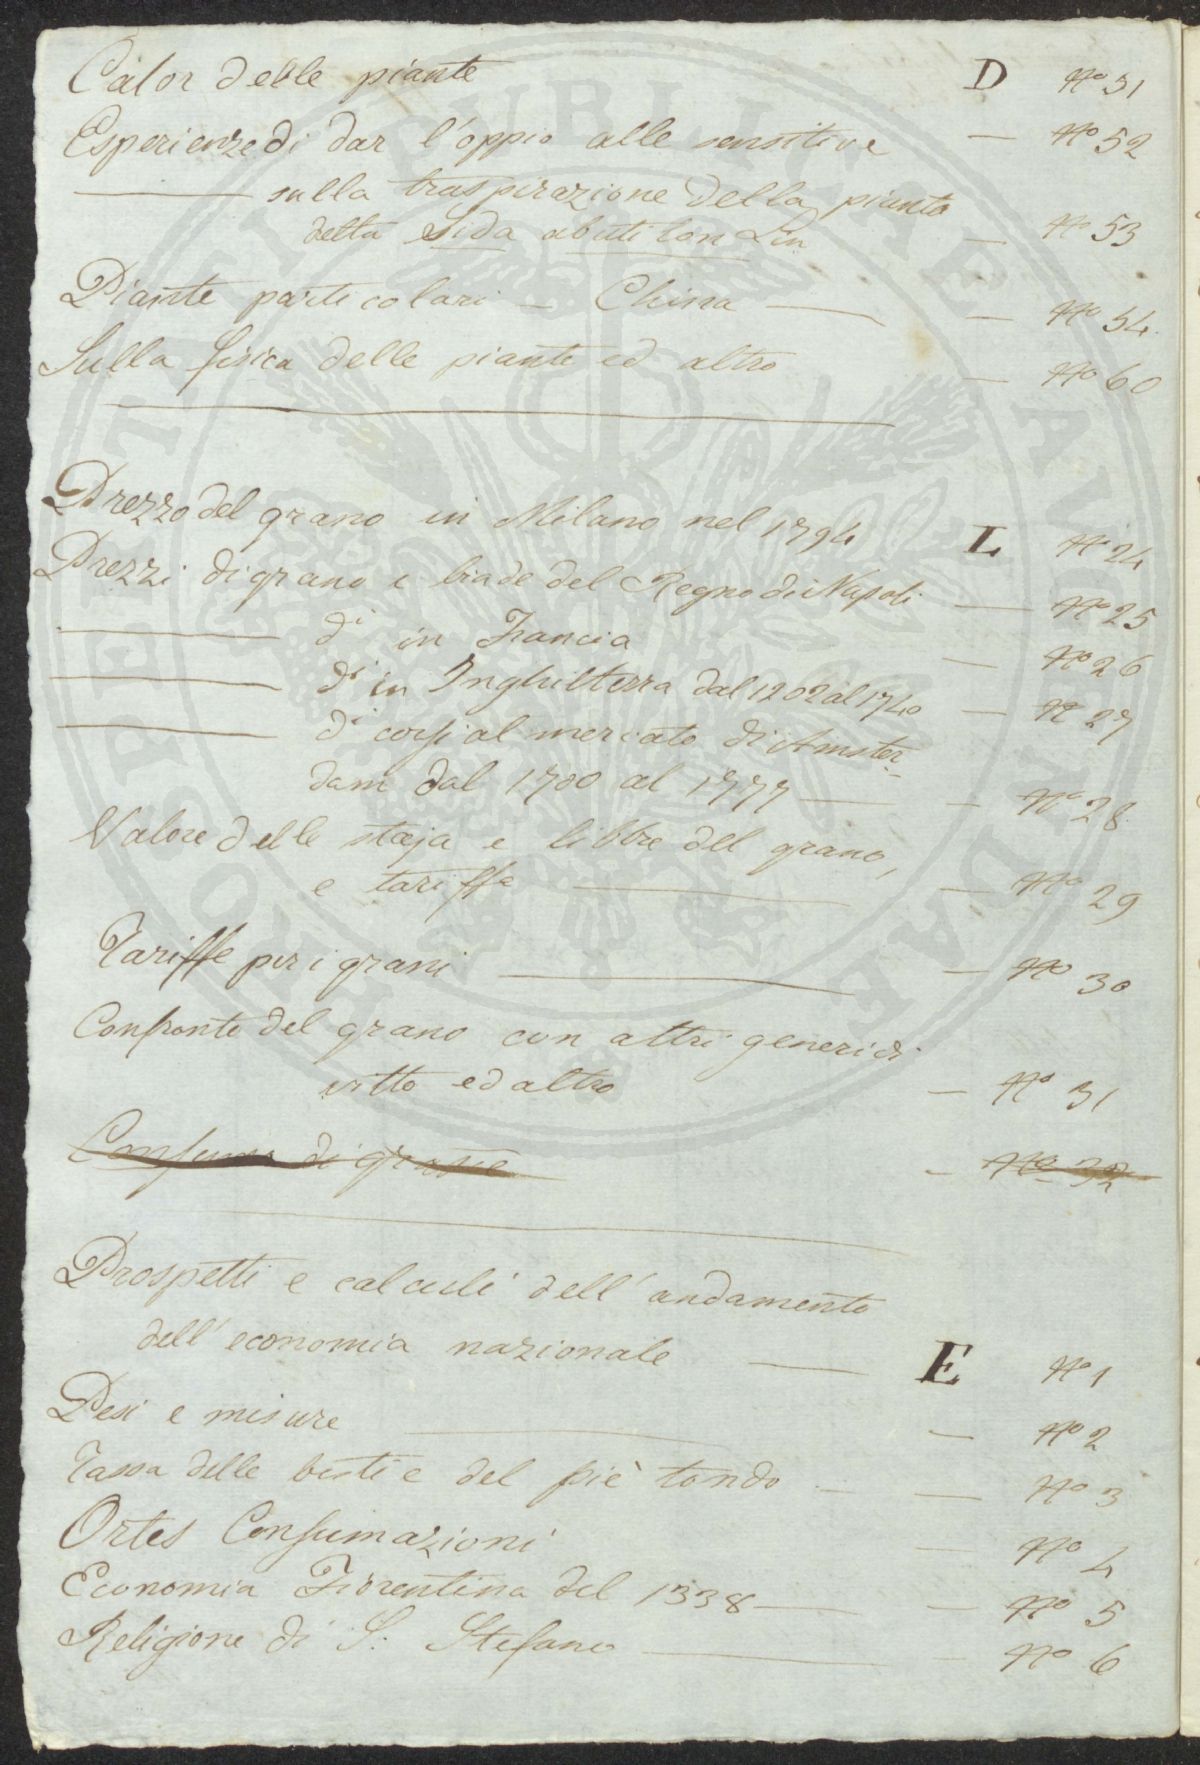 Calor delle piante D N° 51
Esperienze di dar l'oppio alle sensitive — N° 52
——— sulla traspirazione della pianta
detta Sida abutilon Lin — N° 53
Piante particolari — China — — N° 54.
Sulla fisica delle piante ed altro — N° 60
Prezzo del grano in Milano nel 1794 L N° 24
Prezzi di grano e biade del Regno di Napoli — N° 25
——— di in Francia — N° 26
——— di in Inghilterra dal 1202 al 1740 — N° 27
——— di corsi al mercato di Amster-
dam dal 1700 al 1777 — — N° 28.
Valore delle staja e libbre del grano,
e tariffa — — N° 29
Tariffe per i grani — — N° 30
Confronto del grano con altri generi di
vitto ed altro — N° 31
Consumo di grasce — N° 32
Prospetti e calculi dell'andamento
dell'economia nazionale — E N° 1
Pesi e misure — — N° 2
Tassa delle bestie del piè tondo — — N° 3
Ortes Consumazioni — N° 4
Economia Fiorentina del 1338 — — N° 5
Religione di S. Stefano — — N° 6
HOSPITALITATI PUBLICAE AUGENDAE